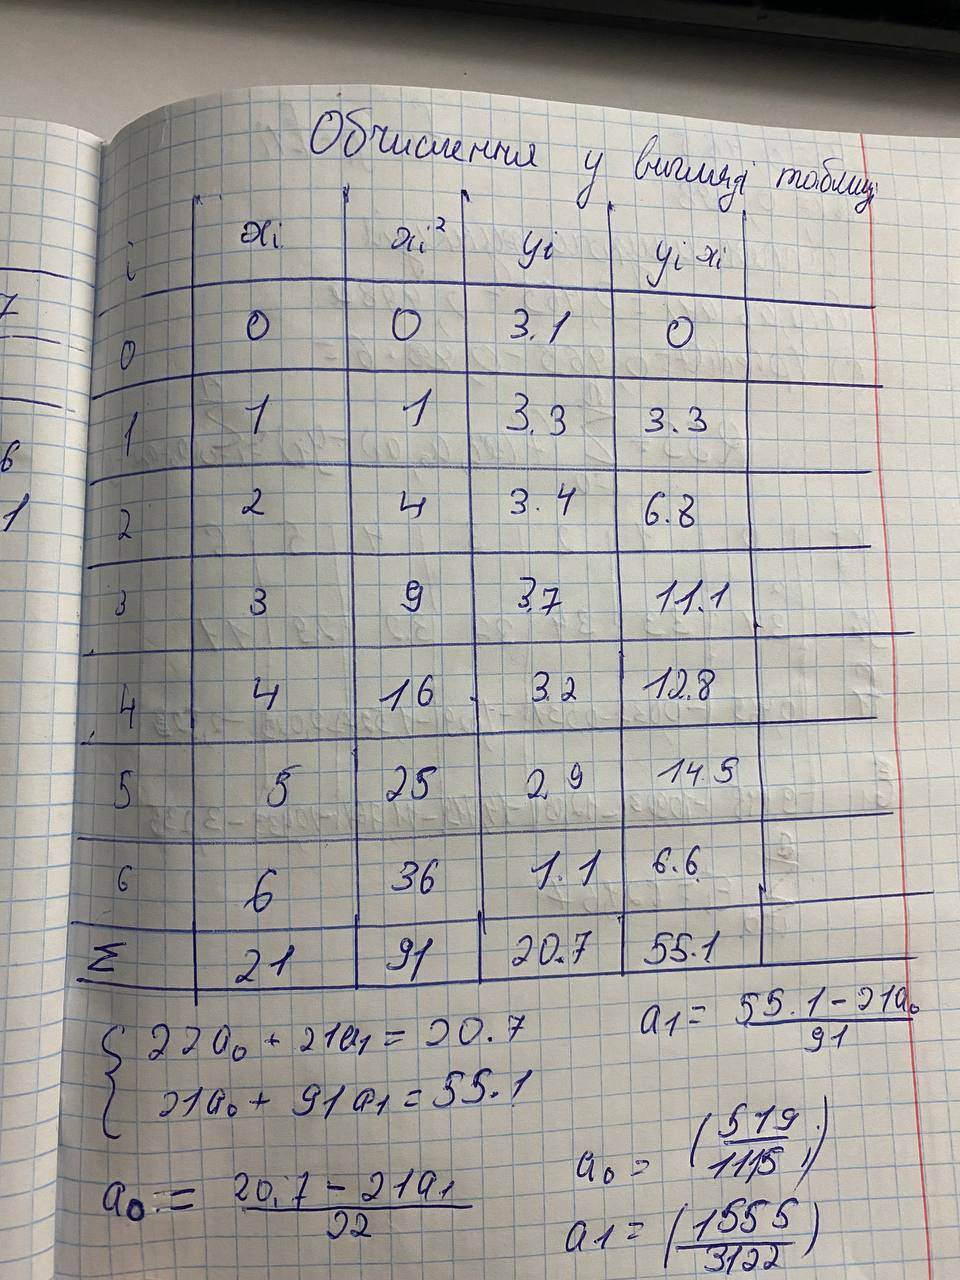 Обчислення у вигляді таблиці
i xi xi² yi yi xi
0 0 0 3.1 0
1 1 1 3.3 3.3
2 2 4 3.4 6.8
3 3 9 3.7 11.1
4 4 16 3.2 12.8
5 5 25 2.9 14.5
6 6 36 1.1 6.6
Σ 21 91 20.7 55.1
{ 22a₀ + 21a₁ = 20.7
21a₀ + 91a₁ = 55.1
a₁ = (55.1 - 21a₀) / 91
a₀ = (20.7 - 21a₁) / 22
a₀ = (519/1115)
a₁ = (1555/3122)
7
6
1